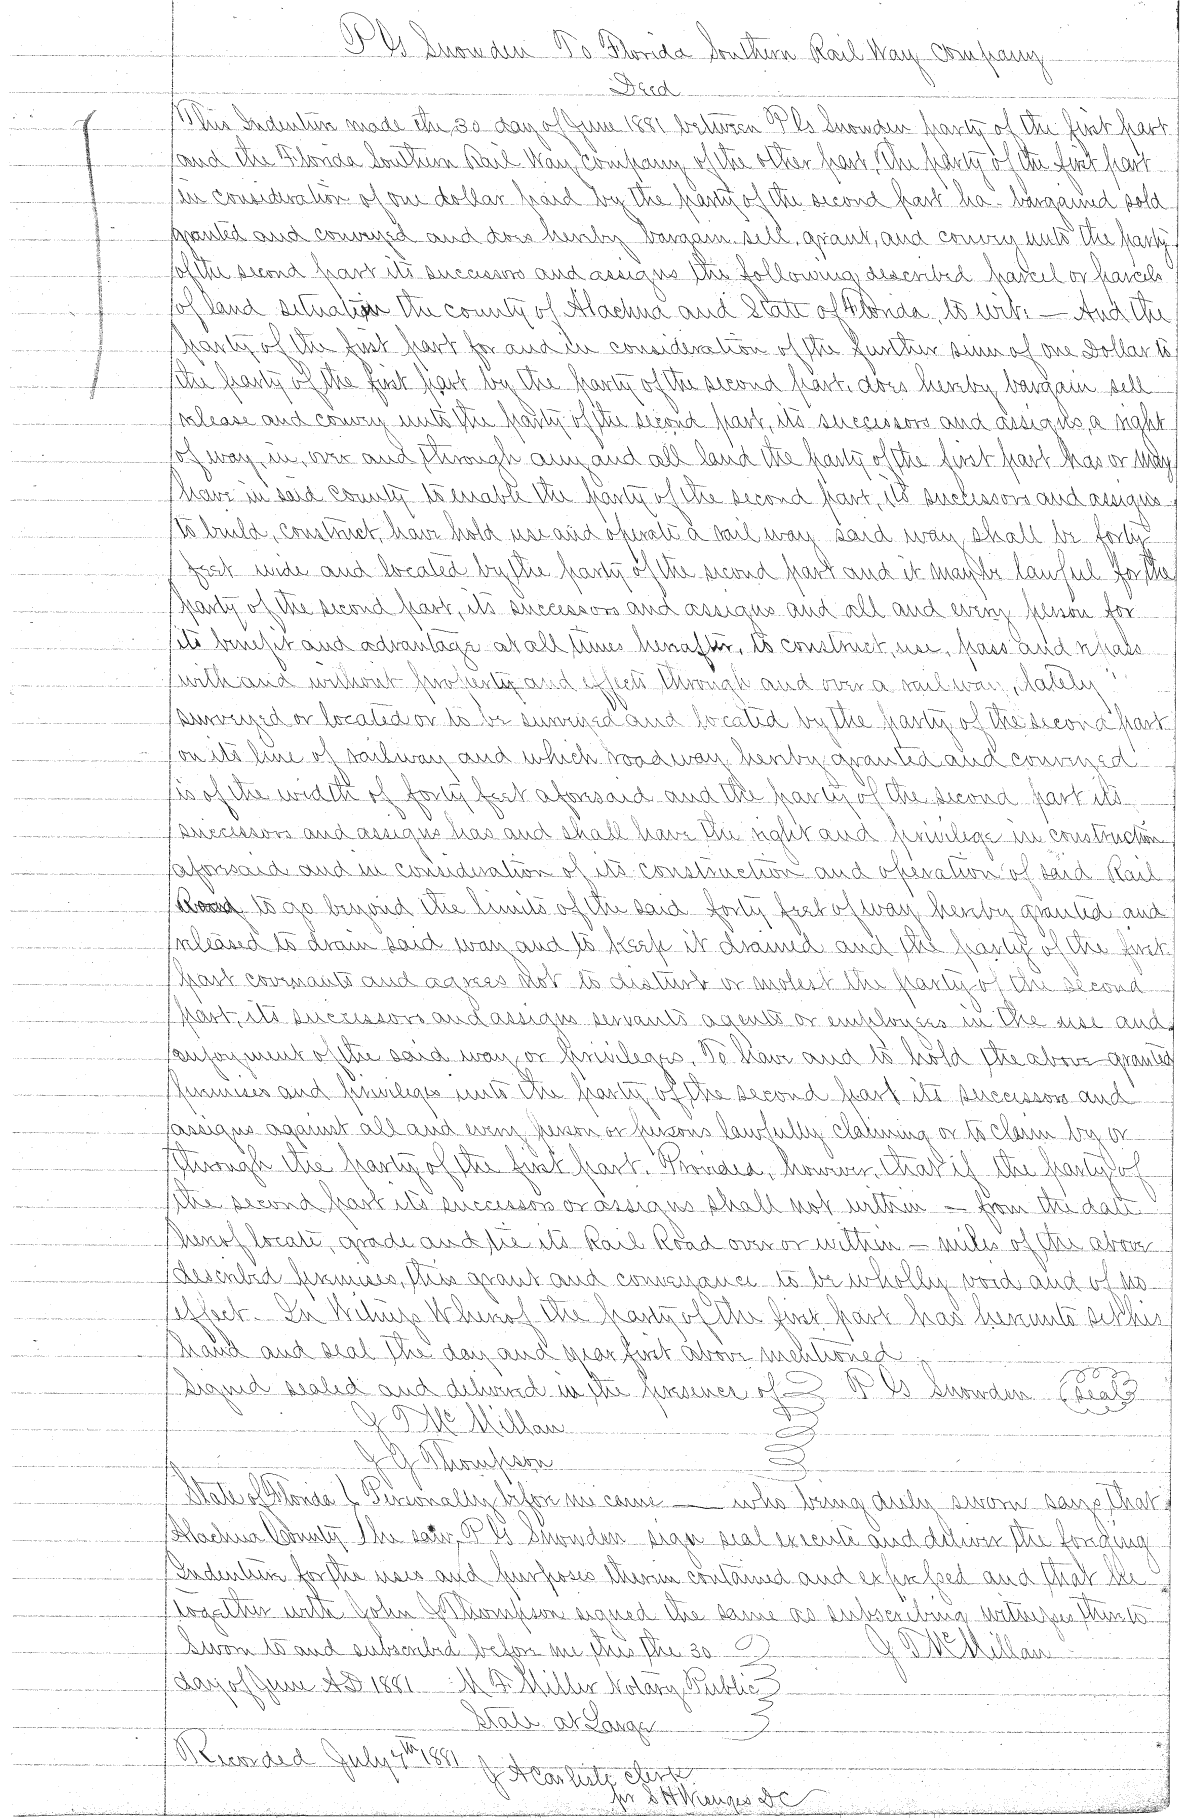 P G Snowden To Florida Southern Rail Way Company
Deed
This Indenture made the 30 day of June 1881 between P G Snowden party of the first part
and the Florida Southern Rail Way Company of the other part, The party of the first part
in consideration of one dollar paid by the party of the second part ha- bargained sold
granted and conveyed and does hereby bargain sell, grant, and convey unto the party
of the second part its successors and assigns the following described parcel or parcels
of land situate in the county of Alachua and State of Florida, to wit: — And the
party of the first part for and in consideration of the further sum of one Dollar to
the party of the first part by the party of the second part, does hereby bargain sell
release and convey unto the party of the second part, its successors and assigns, a right
of way, in, over and through any and all land the party of the first part has or may
have in said county to enable the party of the second part, its successors and assigns
to build, construct, have hold use and operate a rail way said way shall be forty
feet wide and located by the party of the second part and it may be lawful for the
party of the second part, its successors and assigns and all and every person for
its benefit and advantage at all times hereafter, to construct, use, pass and repass
with and without property and effects through and over a rail way, lately
surveyed or located or to be surveyed and located by the party of the second part
on its line of railway and which roadway hereby granted and conveyed
is of the width of forty feet aforesaid and the party of the second part its
successors and assigns has and shall have the right and privilege in construction
aforesaid and in consideration of its construction and operation of said Rail
Road to go beyond the limits of the said forty feet of way hereby granted and
released to drain said way and to keep it drained and the party of the first
part covenants and agrees not to disturb or molest the party of the second
part, its successors and assigns servants agents or employees in the use and
enjoyment of the said way or privileges, To have and to hold the above granted
premises and privileges unto the party of the second part its successors and
assigns against all and every person or persons lawfully claiming or to claim by or
through the party of the first part. Provided, however, that if the party of
the second part its successors or assigns shall not within — from the date
hereof locate, grade and tie its Rail Road over or within — miles of the above
described premises, this grant and conveyance to be wholly void and of no
effect. In Witness Whereof the party of the first part has hereunto set his
hand and seal the day and year first above mentioned
Signed sealed and delivered in the presence of P G Snowden (seal)
J T McMillan
J G Thompson
State of Florida { Personally before me came — who being duly sworn says, that
Alachua County he saw P G Snowden sign seal execute and deliver the foregoing
Indenture for the uses and purposes therein contained and expressed and that he
together with John J Thompson signed the same as subscribing witnesses thereto
Sworn to and subscribed before me this the 30 J T McMillan
day of June AD 1881 M F Miller Notary Public
State at Large
Recorded July 7th 1881
J A Carlisle clerk
pr S H Wienges DC